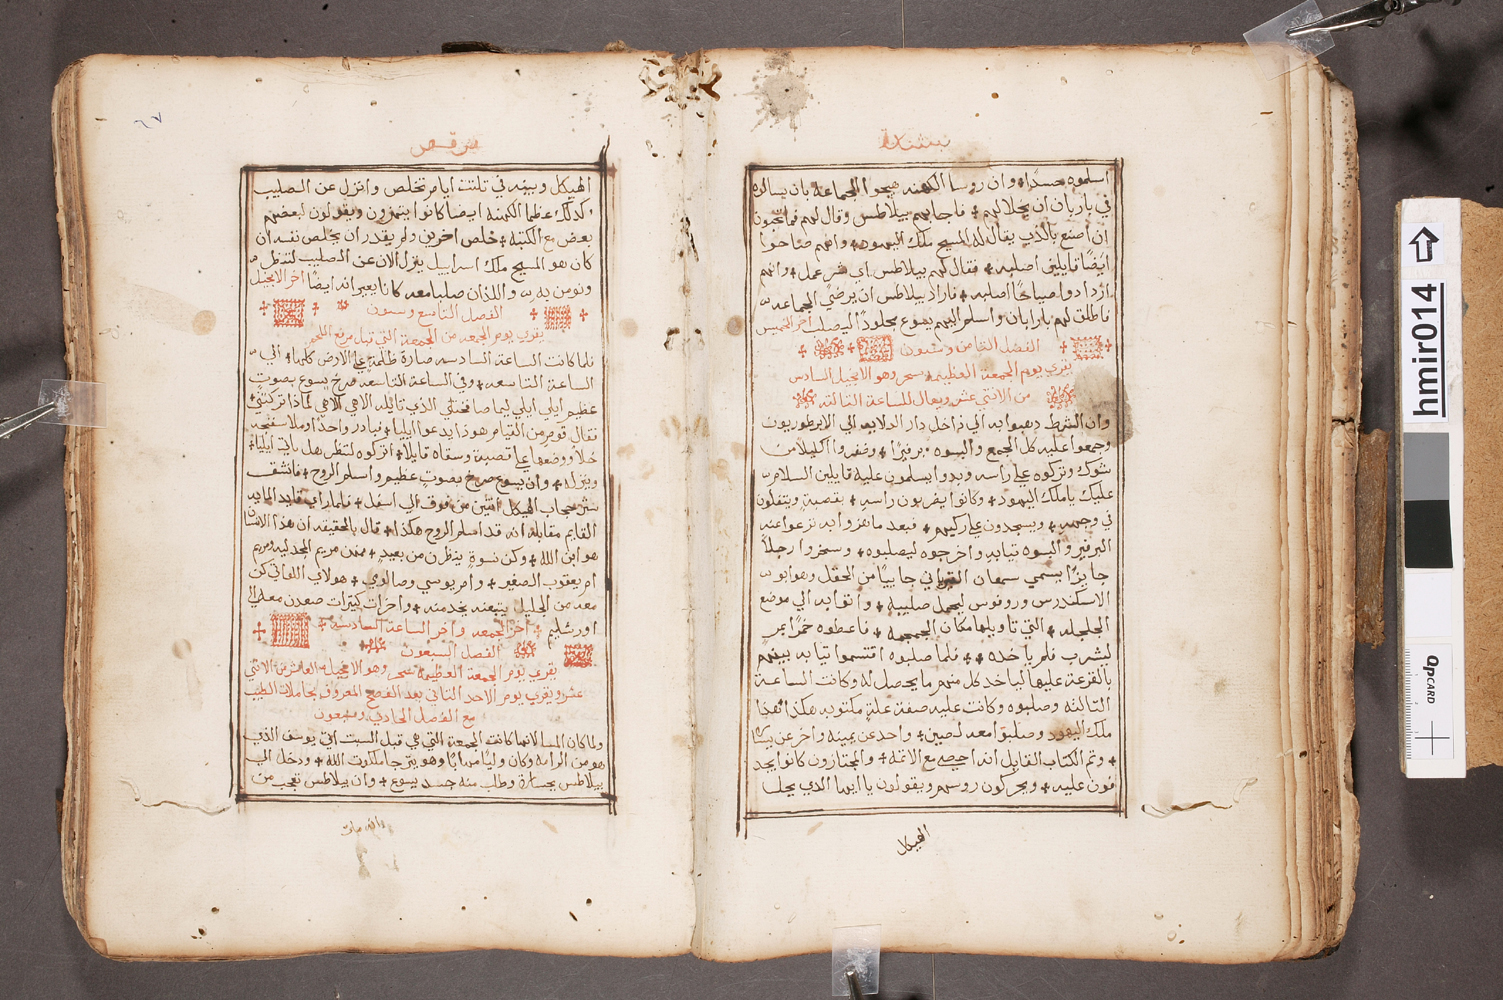 بشارة
اسلموه حسدًا، وان روسا الكهنه هيجوا الجماعة بان يسالوه
في باربان ان يحلالهم ✦ فاجابهم بيلاطس وقال لهم فما تحبون
ان اصنع بالذي يقال له المسيح ملك اليهود ✦ وانهم صاحوا
ايضًا قايلين اصلبه ✦ فقال لهم بيلاطس اي شر عمل ✦ وانهم
ازدادوا صياحًا اصلبه ✦ فاراد بيلاطس ان يرضي الجماعه
فاطلق لهم بارابان واسلم اليهم يسوع مجلودًا ليصلب اخر الخميس
الفصل الثامن وستون
يقري يوم الجمعة العظيمه سحر وهو الانجيل السادس
من الاثني عشر ويقال للساعة الثالثه
وان الشرط دهبوا به الي داخل دار الولايه الي الابرطوريون
وجمعوا عليه كل الجمع والبسوه برفيرًا ✦ وضفروا اكليلا من
شوك وتركوه علي راسه وبدوا يسلمون عليه قايلين السلام
عليك ياملك اليهود ✦ وكانوا يضربون راسه ✦ بقصبة ويتفلون
في وجهه ✦ ويسجدون علي ركبهم ✦ فبعد ما هزوا به نزعوا عنه
البرفير والبسوه تيابه واخرجوه ليصلبوه ✦ وسخروا رجلاً
جايزًا يسمي سمعان القرياني جاييًا من الحقل وهو ابو
الاسكندرس وروفوس ليحمل صليبه ✦ واتوا به الي موضع
الجلجله ✦ التي تاويلها مكان الجمجمه ✦ فاعطوه خمرًا بمر
لشرب فلم ياخده ✦ ✦ فلما صلبوه اقتسموا تيابه بينهم
بالقرعة عليها لياخد كل منهم ما يحصل له وكانت الساعة
التالته وصلبوه وكانت عليه صفة علة مكتوبه هكذا هذا
ملك اليهود وصلبوا معه لصين ✦ واحد عن يمينه واخر عن يساره
✦ وتم الكتاب القايل انه احصي مع الاتمه ✦ والمجتازون كانوا يجد
فون عليه ✦ ويحركون روسهم ويقولون يا ايها الذي يحل
الهيكل
مرقس
٦٧
الهيكل ويبنيه في تلتت ايام تخلص وانزل عن الصليب
كذلك عظما الكهنة ايضًا كانوا يتهزون ويقولون لبعضهم
بعض مع الكتبه ✦ خلص اخرين ولم يقدر ان يخلص نفسه ان
كان هو المسيح ملك اسراييل ينزل الان عن الصليب لننظر
ونومن به واللذان صلبا معه كانا يعيرانه ايضًا اخر الانجيل
الفصل التاسع وستون
يقري يوم الجمعه من الجمعة التي قبل مرفع اللحم
فلما كانت الساعة السادسه صارة ظلمة علي الارض كلها ✦ الي
الساعة التاسعه ✦ وفي الساعة التاسعه صرخ يسوع بصوت
عظيم ايلي ايلي ليما صافختني الذي تاويله الاهي الاهي لماذا تركتني ✦
فقال قوم من القيام هوذا يدعوا ايليا ✦ فبادر واحد وملا سفنجه
خلاً ووضعها علي قصبة وسقاه قايلا ✦ اتركوه لننظر هل ياتي ايلياء
وينزله ✦ وان يسوع صرخ بصوت عظيم واسلم الروح ✦ فانشق
ستر حجاب الهيكل اتنين من فوق الي اسفل ✦ فلما راي قايد المايه
القايم مقابله انه قد اسلم الروح هكذا ✦ قال بالحقيقه ان هذا الانسان
هو ابن الله ✦ وكن نسوة ينظرن من بعيد ✦ منهن مريم المجدليه ومريم
ام يعقوب الصغير ✦ وام يوسي وصالومي ✦ هولاي اللواتي كن
معه من الجليل يتبعنه يخدمنه ✦ واخرات كتيرات صعدن معه الي
اورشليم ✦ اخر الجمعه واخر الساعة السادسه ✦
الفصل السبعون
يقري يوم الجمعة العظيمة سحر وهو الانجيل العاشر من الاثني
عشر ويقري يوم الاحد الثاني بعد الفصح المعروف بحاملات الطيب
مع الفصل الحادي وسبعون
ولما كان المسا لانها كانت الجمعة التي هي قبل السبت اتي يوسف الذي
هو من الرامة وكان وليًا مهابًا وهو يترجا ملكوت الله ✦ ودخل الي
بيلاطس بجسارة وطلب منه جسد يسوع ✦ وان بيلاطس تعجب من